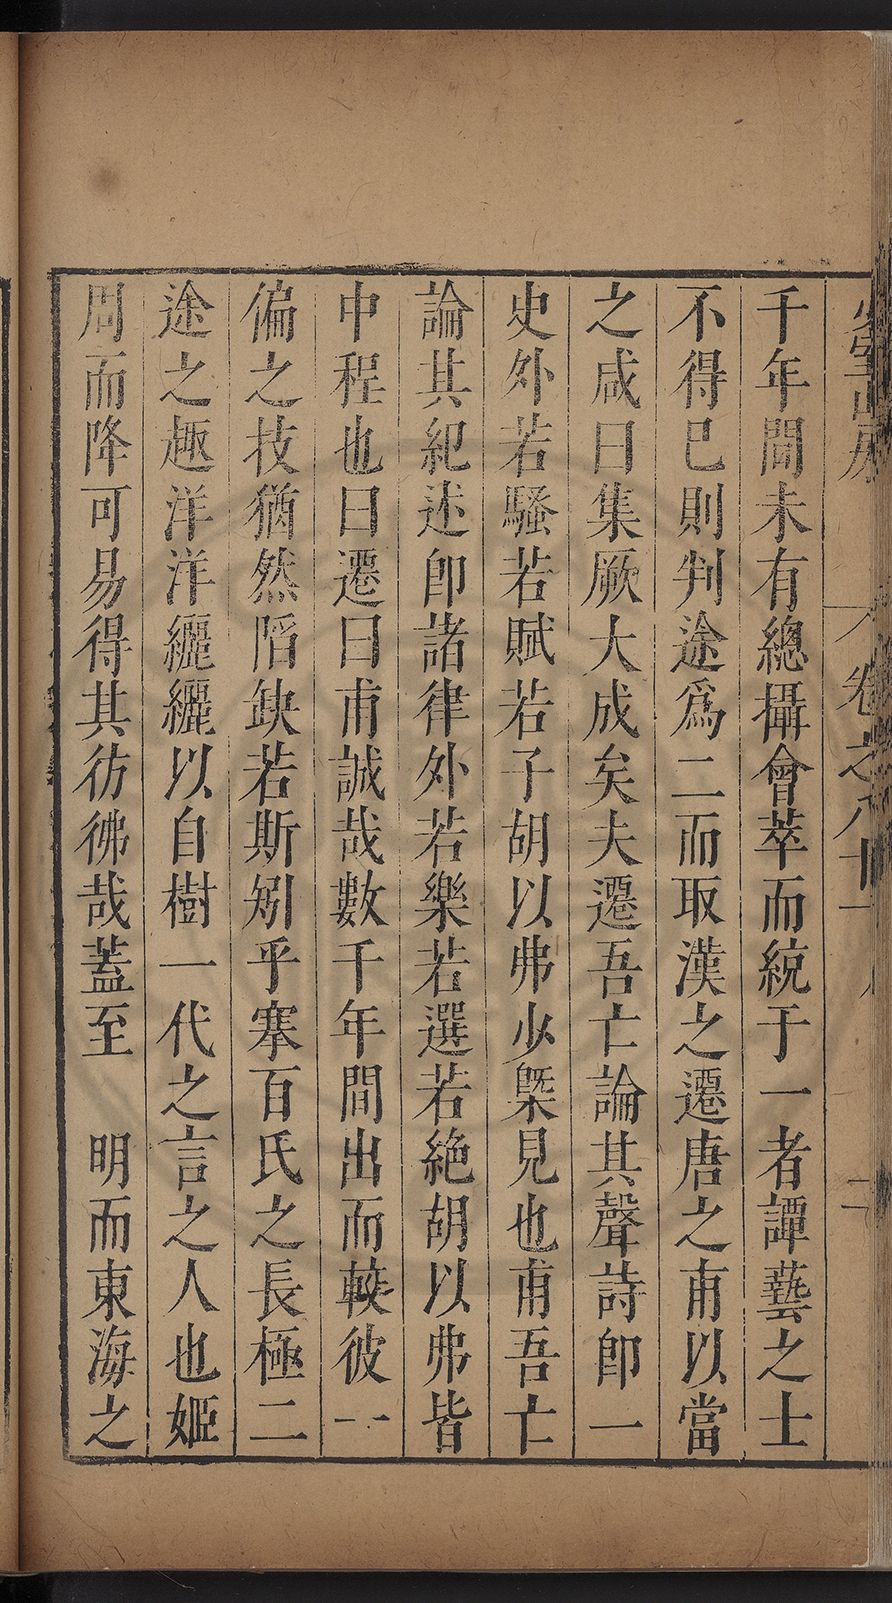 千年間未有總攝會萃而統于一者譚藝之士
不得已則判途爲二而取漢之遷唐之甫以當
之咸曰集厥大成矣夫遷吾亡論其聲詩卽一
史外若騷若賦若子胡以弗少槩見也甫吾亡
論其紀述卽諸律外若樂若選若絶胡以弗皆
中程也曰遷曰甫誠哉數千年間出而較彼一
偏之技猶然陷缺若斯矧乎搴百氏之長極二
途之趣洋洋纚纚以自樹一代之言之人也姬
周而降可易得其彷彿哉蓋至 明而東海之
卷之八十一
二